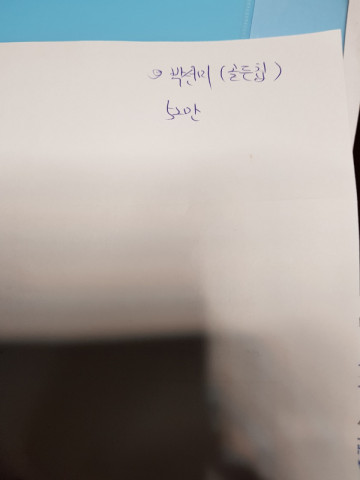 박현미 (골든힐)
50만